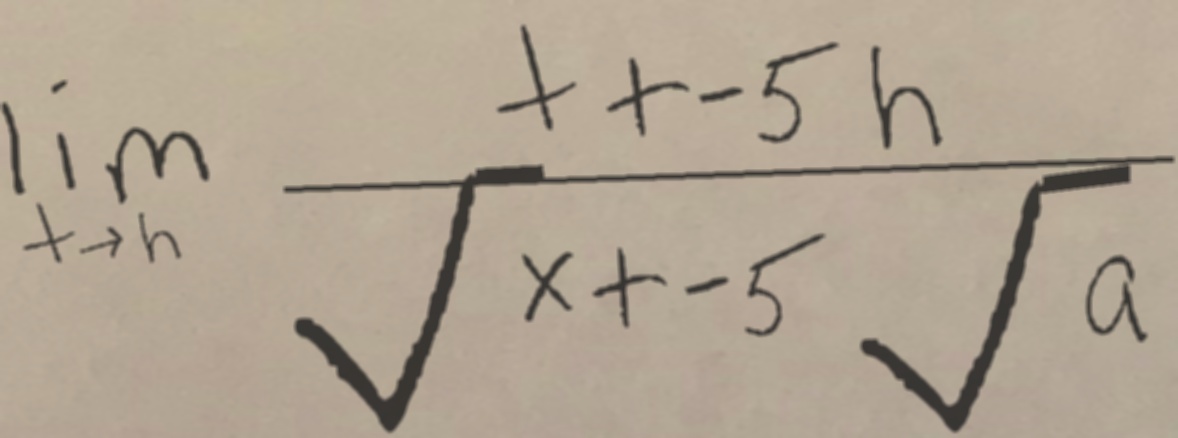 lim t→h (t + -5h)/(√x + -5√a)